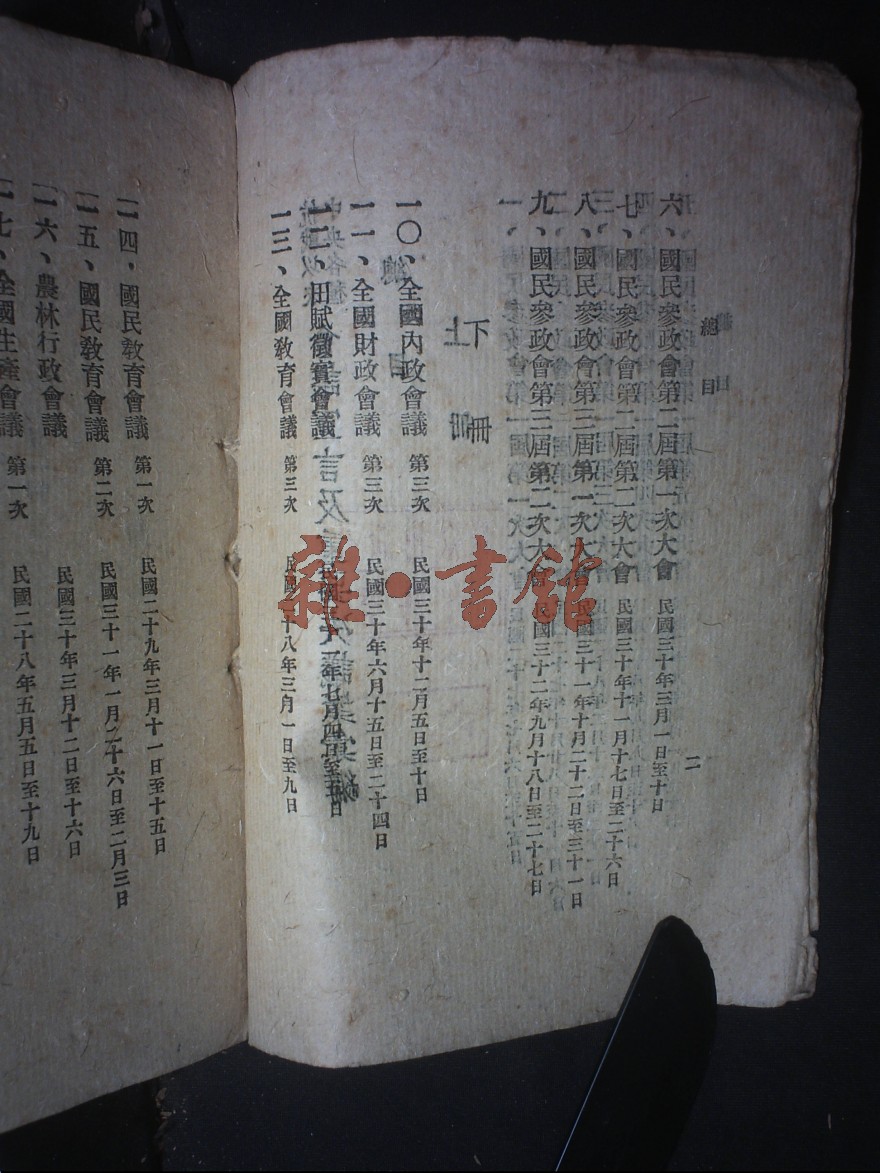 總目
二
六、國民參政會第二屆第一次大會 民國三十年三月一日至十日
七、國民參政會第二屆第二次大會 民國三十年十一月十七日至二十六日
八、國民參政會第三屆第一次大會 民國三十一年十月二十二日至三十一日
九、國民參政會第三屆第二次大會 民國三十二年九月十八日至二十七日
下冊
一〇、全國內政會議 第三次 民國三十年十二月五日至十日
一一、全國財政會議 第三次 民國三十年六月十五日至二十四日
一二、田賦徵實會議
一三、全國教育會議 第三次 民國二十八年三月一日至九日
一四、國民教育會議 第一次 民國二十九年三月十一日至十五日
一五、國民教育會議 第二次 民國三十一年一月二十六日至二月三日
一六、農林行政會議 民國三十年三月十二日至十六日
一七、全國生產會議 第一次 民國二十八年五月五日至十九日
雜·書館